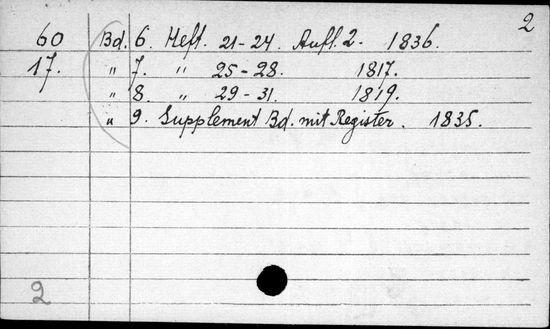 2
60 Bd. 6. Heft. 21-24. Aufl. 2. 1836.
17. " 7. " 25-28. 1817.
" 8. " 29-31. 1819.
" 9. Supplement Bd. mit Register. 1835.
2